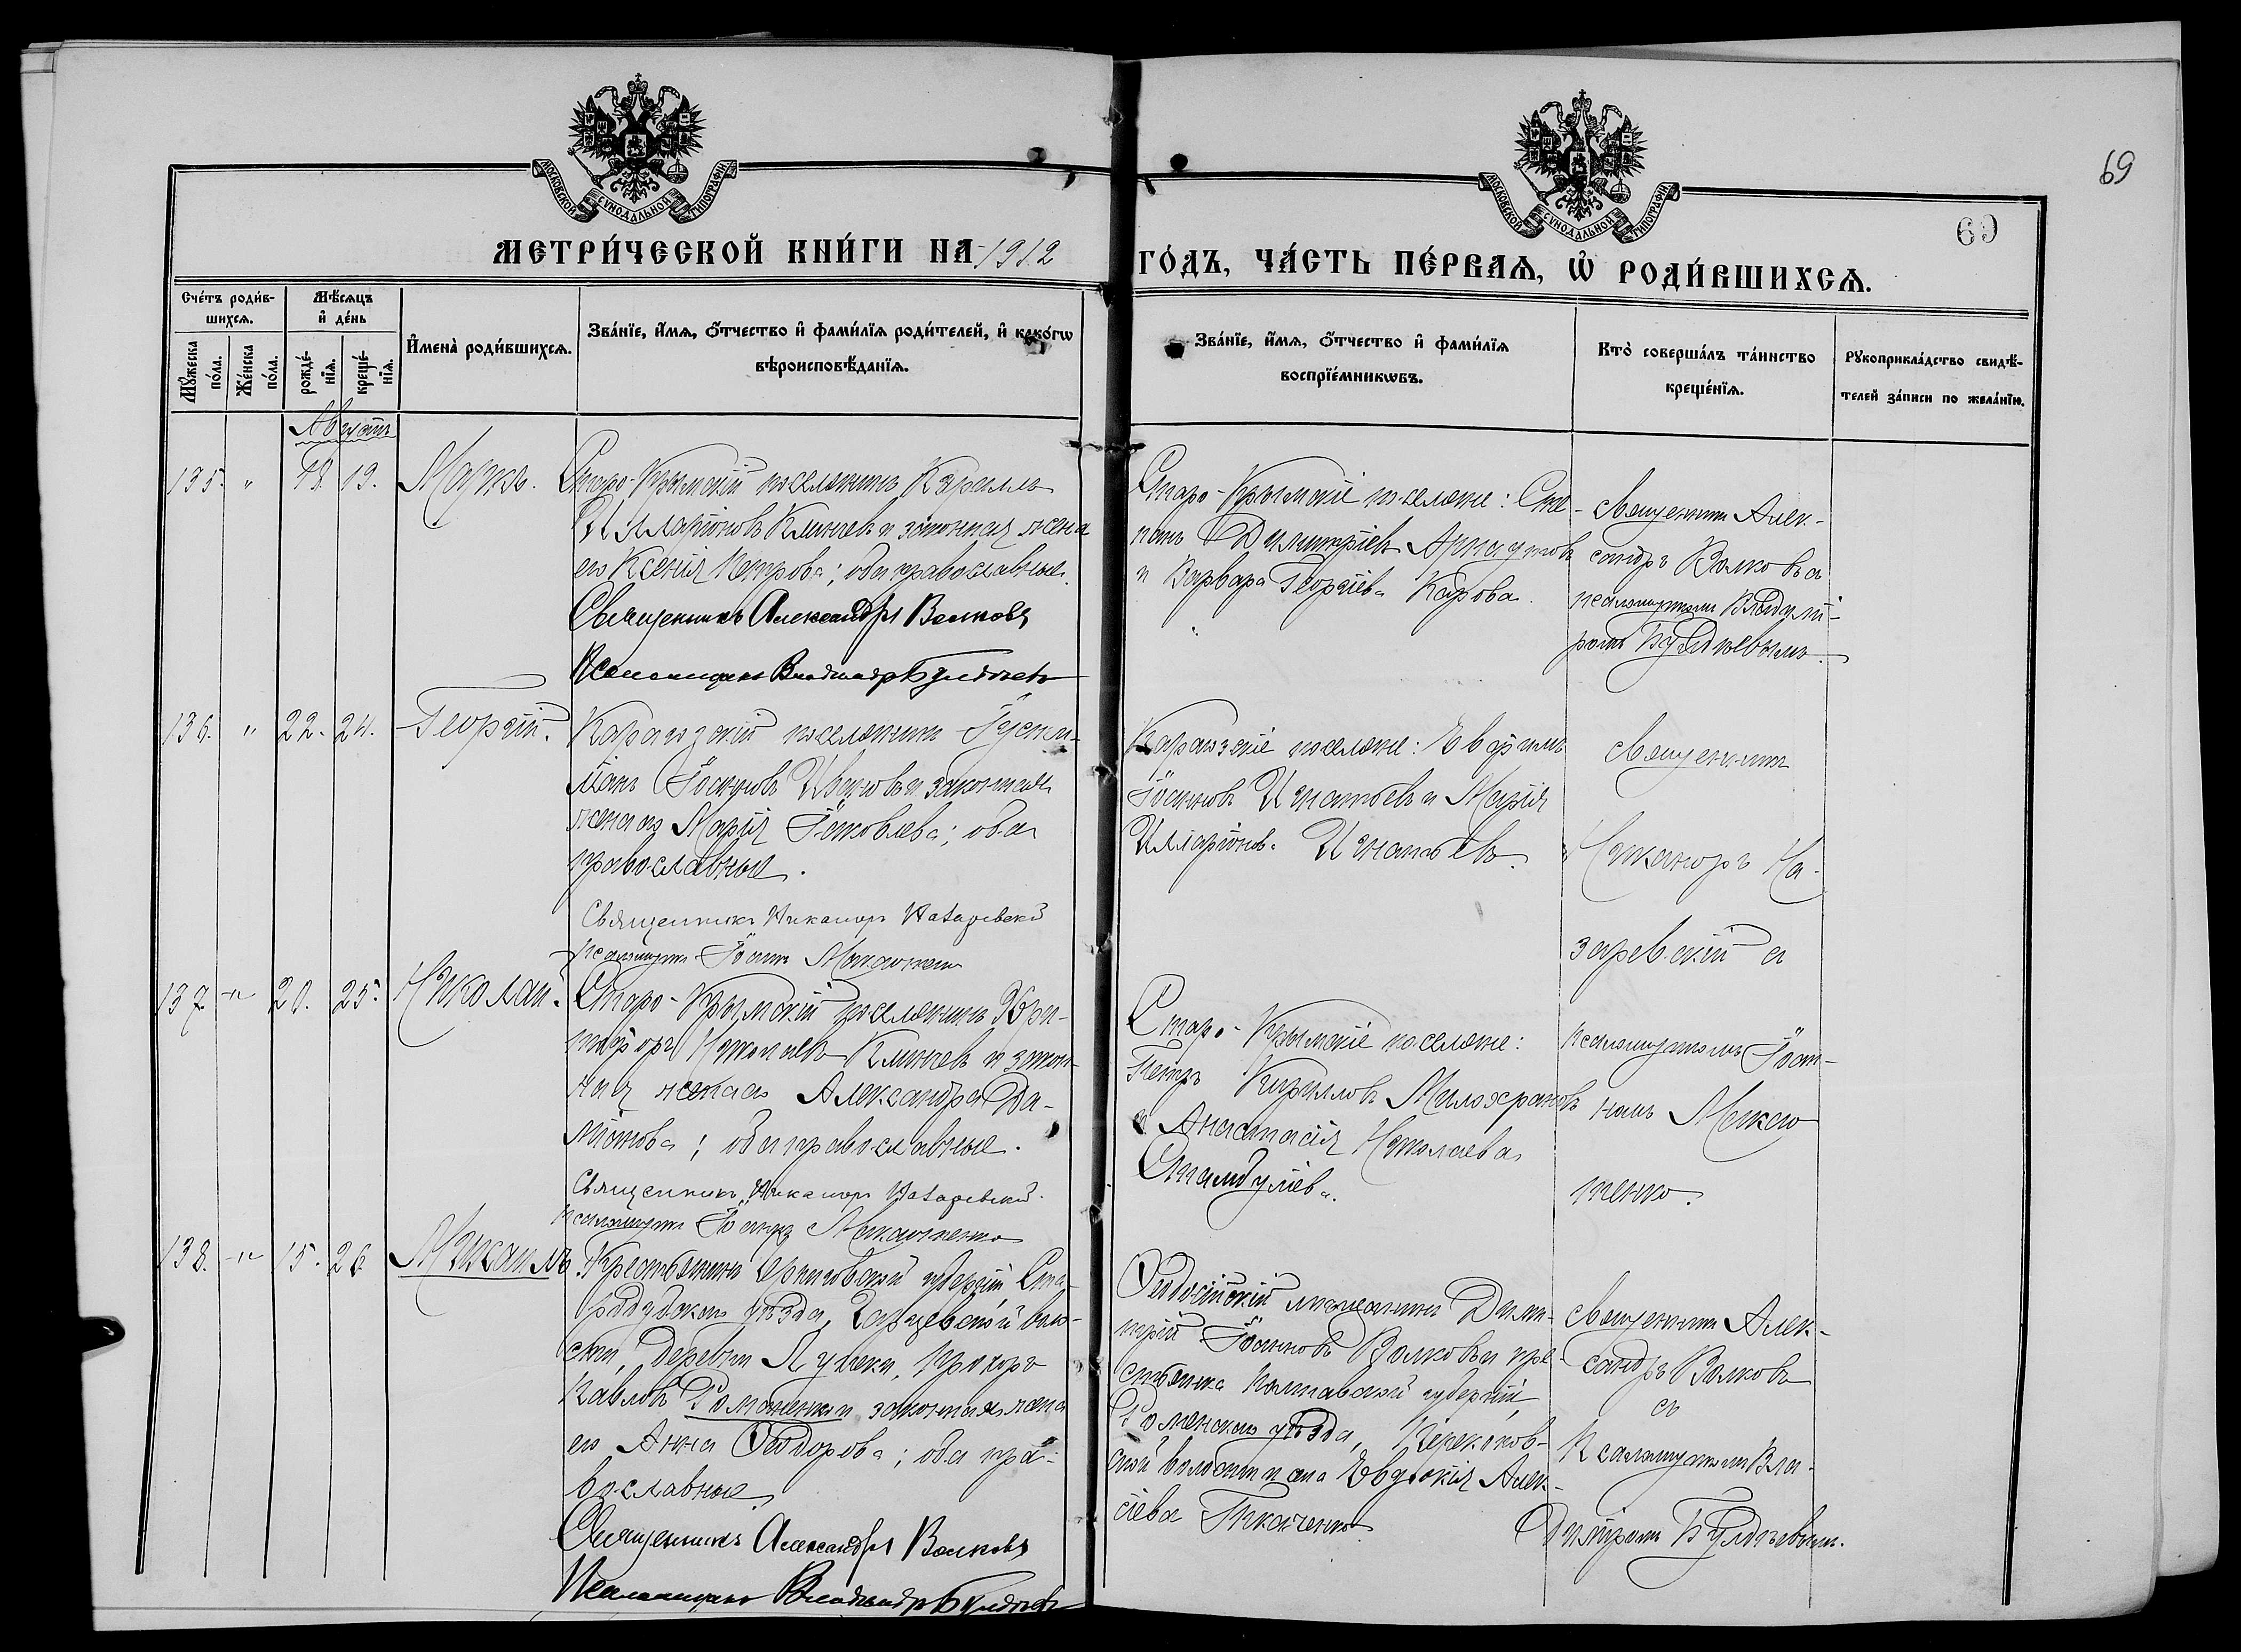 69
МОСКОВСКОЙ СѴНОДАЛЬНОЙ ТИПОГРАФІИ
МОСКОВСКОЙ СѴНОДАЛЬНОЙ ТИПОГРАФІИ
69
МЕТРИ́ЧЕСКОЙ КНИ́ГИ НА 1912
ГО́ДЪ, ЧА́СТЬ ПЕ́РВАѦ, Ѡ҆ РОДИ́ВШИХСѦ.
Сче́тъ роди́в-
шихсѧ.
Мꙋ́жеска
по́ла.
Же́нска
по́ла.
Мѣ́сѧцъ
и҆ де́нь
рожде́-
нїѧ.
креще́-
нїѧ.
И҆мена̀ роди́вшихсѧ.
Зва́нїе, и҆́мѧ, ѻ҆́тчество и҆ фами́лїѧ роди́телей, и҆ како́гѡ
вѣроисповѣ́данїѧ.
Зва́нїе, и҆́мѧ, ѻ҆́тчество и҆ фами́лїѧ
воспрїе́мникѡвъ.
Кто̀ соверша́лъ та́инство
креще́нїѧ.
Рꙋкоприкла́дство свидѣ́-
телей за́писи по жела́нїю.
Августъ
135. " 18. 19. Маркъ.
Старо-Крымскій поселянинъ Кириллъ
Илларіоновъ Климевъ и законная жена
его Ксенія Петрова; оба православные.
Священникъ Александръ Волковъ
Псаломщикъ Владимiръ
Старо-Крымскіе поселяне: Сте-
панъ Димитріевъ Арнаутовъ
и Варвара Георгіева Карова.
Священникъ Алек-
сандръ Волковъ съ
псаломщикомъ Владимі-
ромъ
136. " 22. 24. Георгій.
поселянинъ Іусти-
ніанъ Іоанновъ Ивановъ и законная
жена его Марія Іаковлева; оба
православные.
Священникъ Никаноръ Назаревскій
Псаломщикъ Іоаннъ
поселяне: Евфимъ
Іоанновъ Игнатьевъ и Марія
Илларіонова Игнатьева.
Священникъ
Никаноръ На-
заревскій съ
псаломщикомъ Іоан-
номъ
137 " 20. 25. Николай.
Старо-Крымскій поселянинъ
Николаевъ Климевъ и закон-
ная жена его Александра Да-
міанова; оба православные.
Священникъ Никаноръ Назаревскій.
Псаломщикъ Іоаннъ
Старо-Крымскіе поселяне:
Петръ Кирилловъ
и Анастасія Николаева
Стамбуліева.
138. " 15. 26 Михаилъ.
Крестьянинъ Черниговской губерніи, Ста-
родубскаго уѣзда, воло-
сти, деревни Прохоръ
Павловъ Романенко и законная жена
его Анна Ѳеодорова; оба пра-
вославные.
Священникъ Александръ Волковъ
Псаломщикъ Владимiръ
Ѳеодосійскій мѣщанинъ Дими-
трій Іоанновъ Волковъ и кре-
стьянка Полтавской губерніи,
Роменскаго уѣзда,
волости Евдокія Алек-
сіева Ткаченко.
Священникъ Алек-
сандръ Волковъ
съ
Псаломщикомъ Вла-
диміромъ